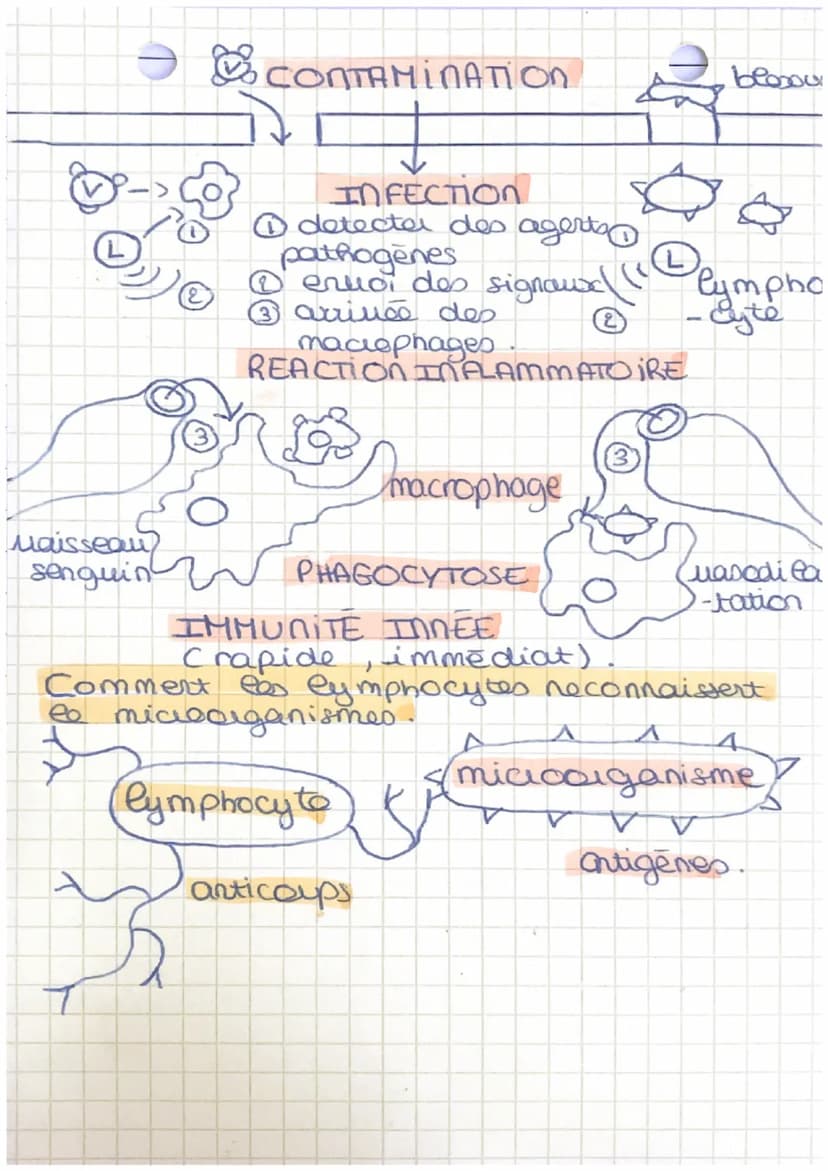 V CONTAMINATION
V
INFECTION
L
① détecter des agents
pathogènes
② envoi des signaux
③ arrivée des
macrophages.
①
②
①
②
L
lympho
-cyte
RÉACTION INFLAMMATOIRE
③
③
macrophage
vaisseau
senguin
PHAGOCYTOSE
vasodila
-tation
IMMUNITÉ INNÉE
(rapide, immédiat).
Comment les lymphocytes reconnaissent
le microorganismes.
lymphocyte
microorganisme
antigènes.
anticorps